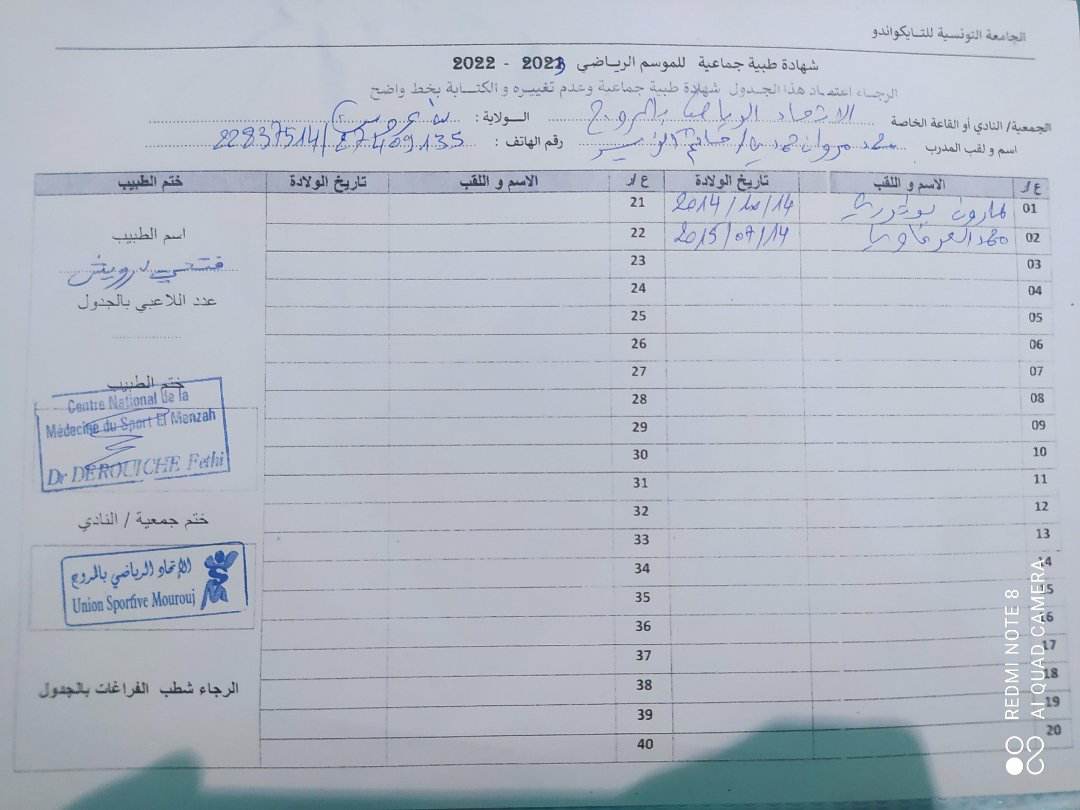 الجامعة التونسية للتايكواندو
شهادة طبية جماعية للموسم الرياضي 2023 - 2022
الرجاء اعتماد هذا الجدول شهادة طبية جماعية وعدم تغييره و الكتابة بخط واضح
الجمعية/ النادي أو القاعة الخاصة الاتحاد الرياضي بالمروج الولاية : بن عروس
اسم و لقب المدرب محمد مروان حمدي / رقم الهاتف : 22837514/27409135
ع/ر الاسم و اللقب تاريخ الولادة ع/ر الاسم و اللقب تاريخ الولادة ختم الطبيب
01 هارون 2014/10/14 21
02 محمد العرفاوي 2015/07/14 22
03 23
04 24
05 25
06 26
07 27
08 28
09 29
10 30
11 31
12 32
13 33
14 34
15 35
16 36
17 37
18 38
19 39
20 40
اسم الطبيب
فتحي درويش
عدد اللاعبي بالجدول
ختم الطبيب
Centre National de la
Médecine du Sport El Menzah
Dr DEROUICHE Fethi
ختم جمعية / النادي
الإتحاد الرياضي بالمروج
Union Sportive Mourouj
الرجاء شطب الفراغات بالجدول
REDMI NOTE 8
AI QUAD CAMERA